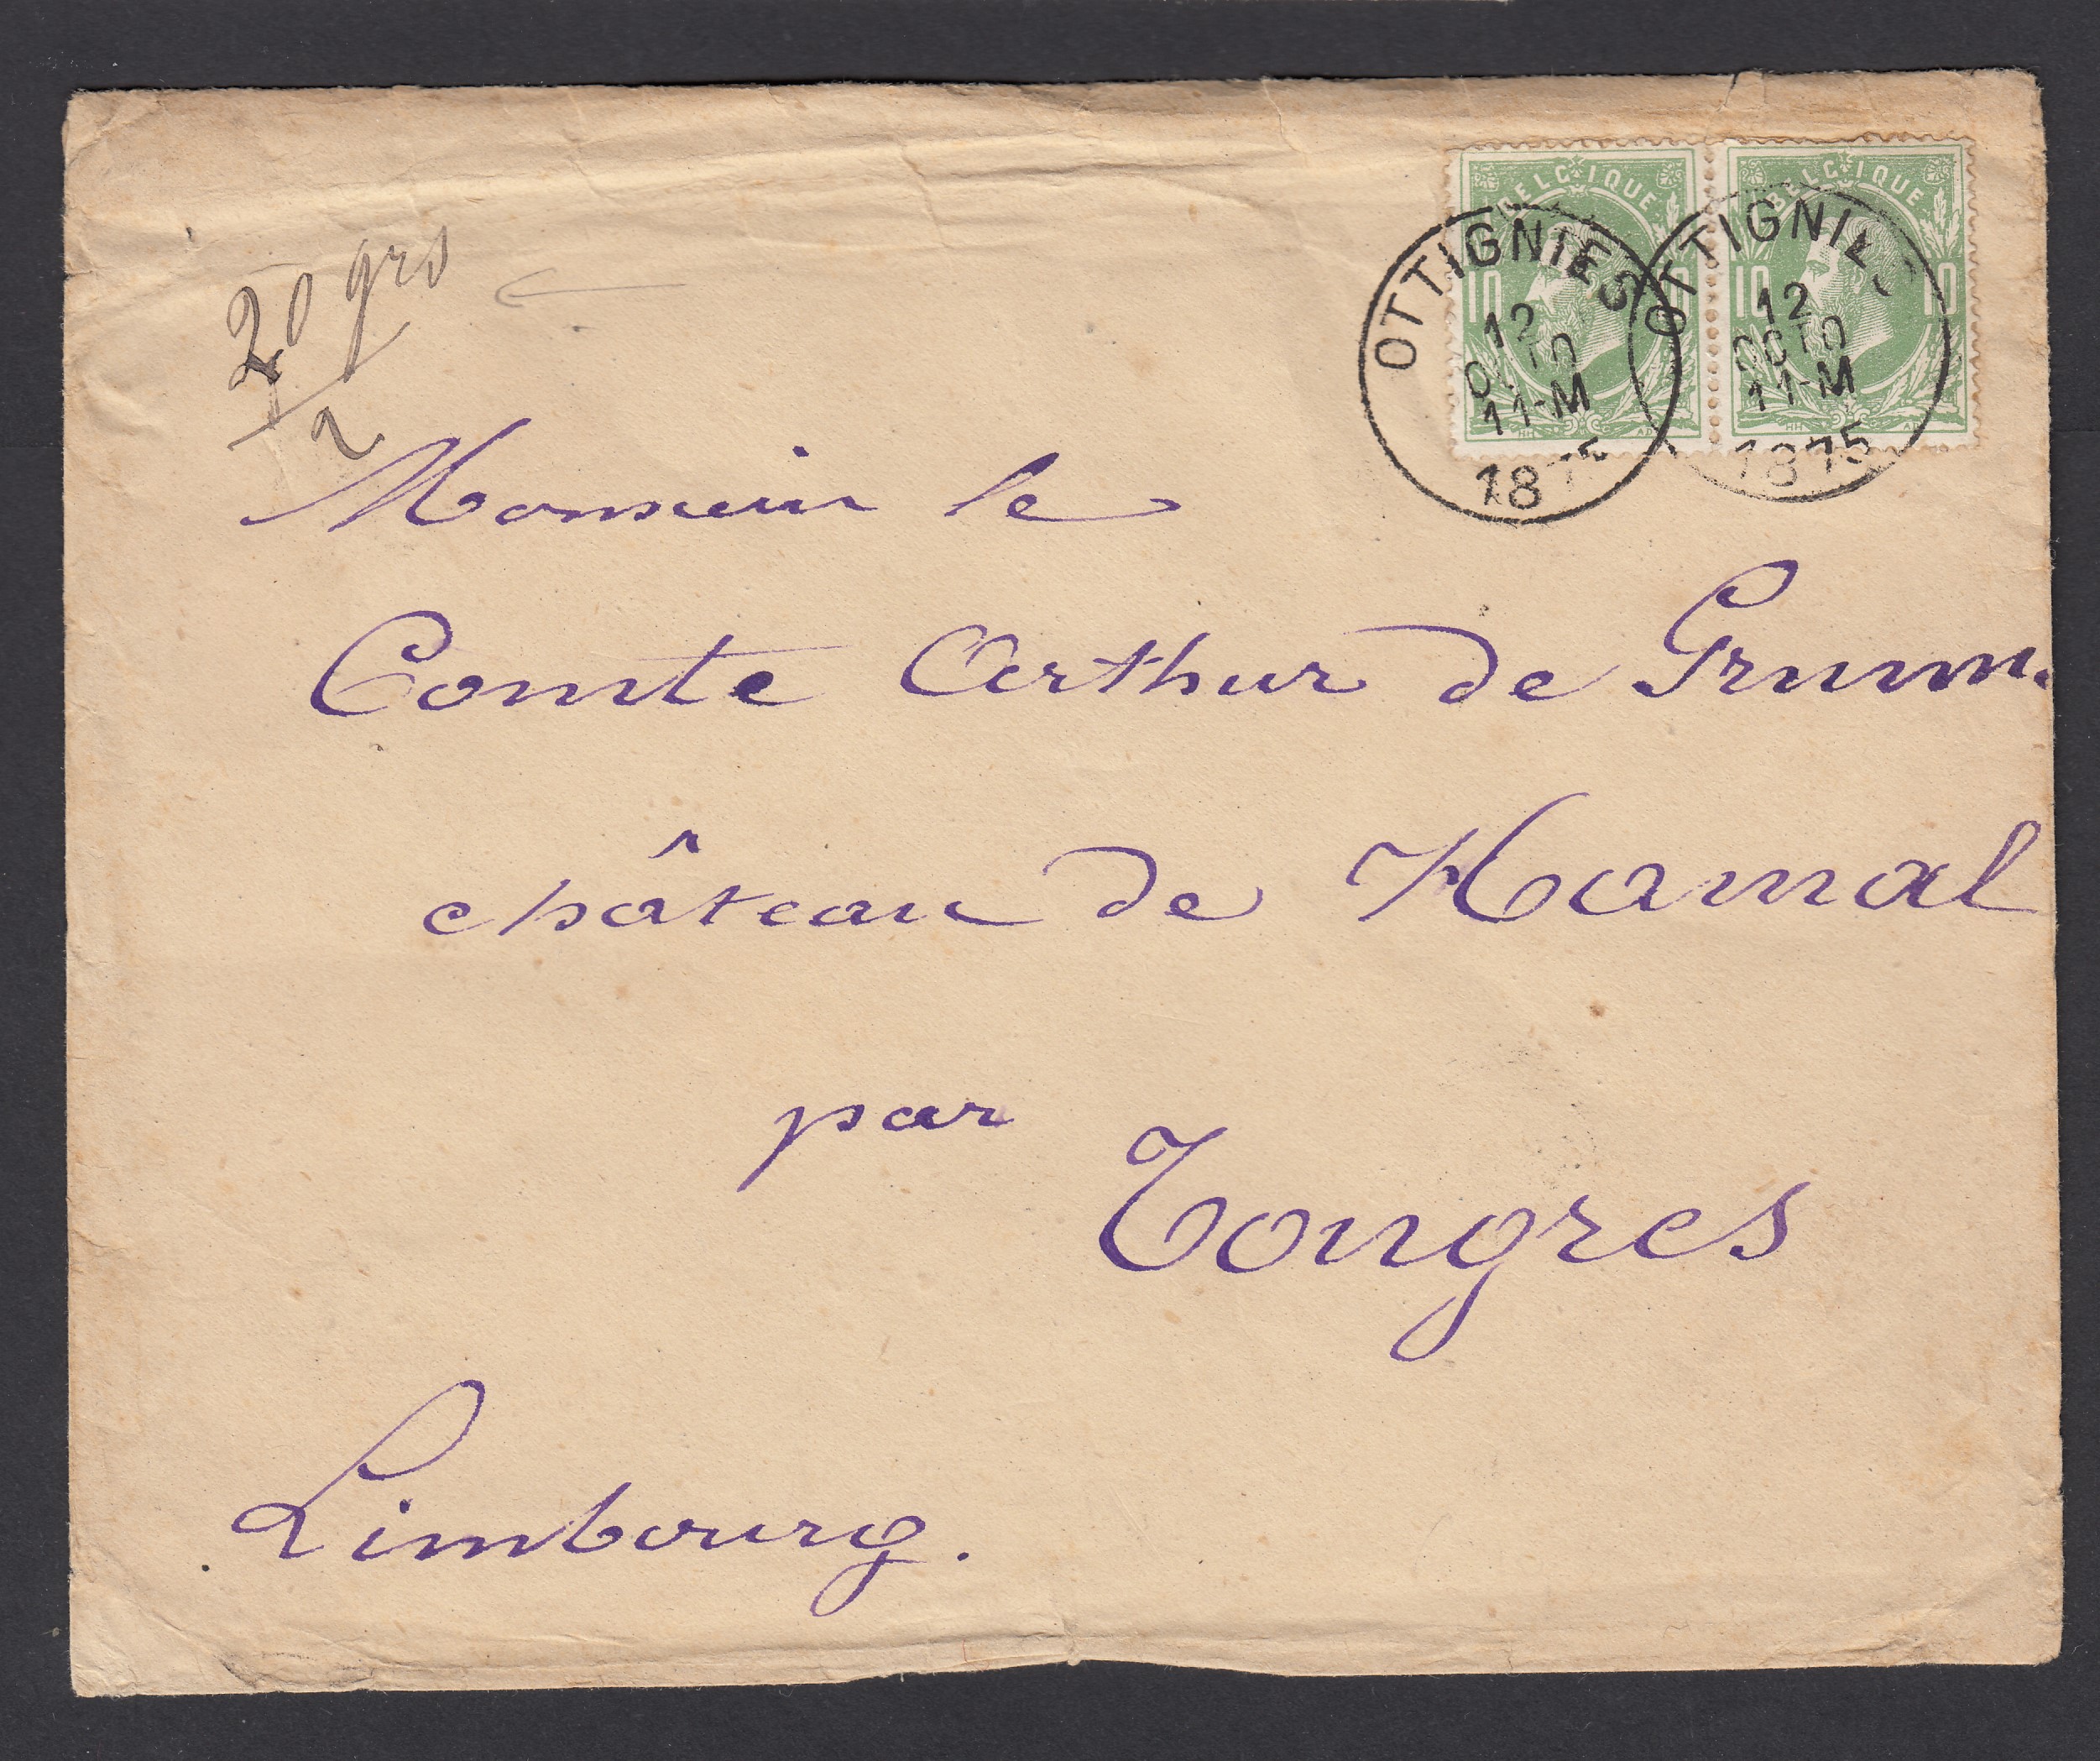 20 grs
2
BELGIQUE BELGIQUE
10 10 10
OTTIGNIES OTTIGNIES
12 12
OCTO OCTO
11-M 11-M
1875 1875
Monsieur le
Comte Arthur de Grunn.
château de Hamal
par
Tongres
Limbourg.